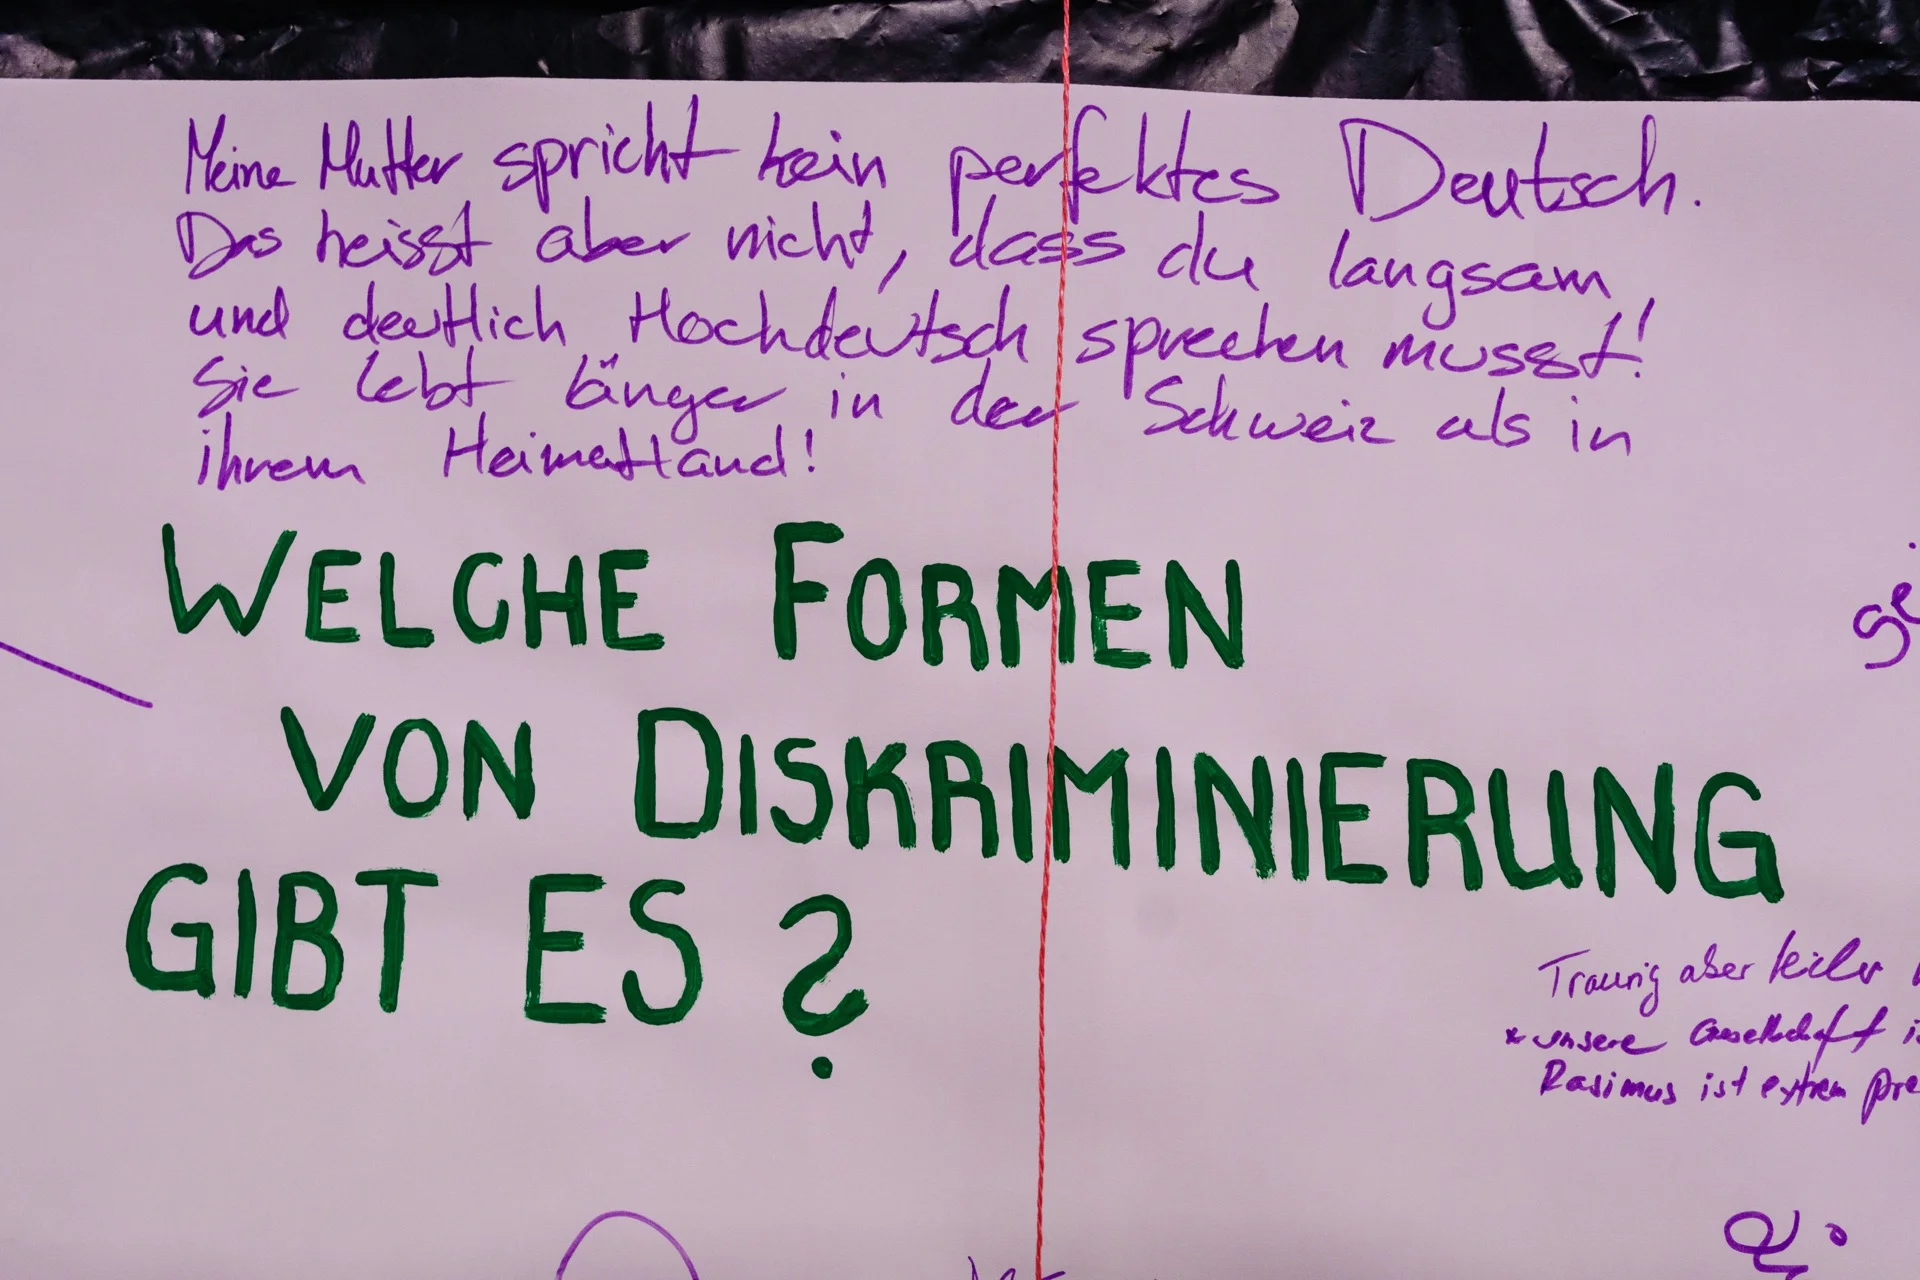 Meine Mutter spricht kein perfektes Deutsch.
Das heisst aber nicht, dass du langsam
und deutlich Hochdeutsch sprechen musst!
Sie lebt länger in der Schweiz als in
ihrem Heimatland!
WELCHE FORMEN
VON DISKRIMINIERUNG
GIBT ES?
Traurig aber
* unsere Gesellschaft
Rasimus ist extrem